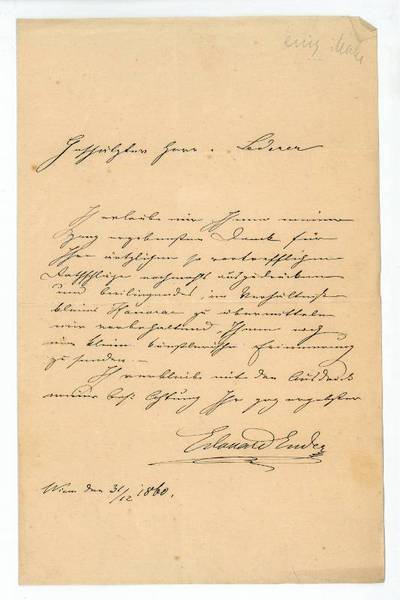 Geschätzter Herr v. Lederer
Ich erlaube mir Ihnen meinen
ganz ergebensten Dank für
Ihre ärztlichen so vortrefflichen
Rathschläge nochmals auszudrücken
und beiliegendes, im Verhältniße
kleine Honorar zu übermitteln
mir vorbehaltend, Ihnen noch
eine kleine künstlerische Erinnerung
zu senden. –
Ich verbleibe mit dem Ausdruck
meiner bes. Achtung Ihr gzg ergebster
Edouard Ender
Wien den 31/12 1860.